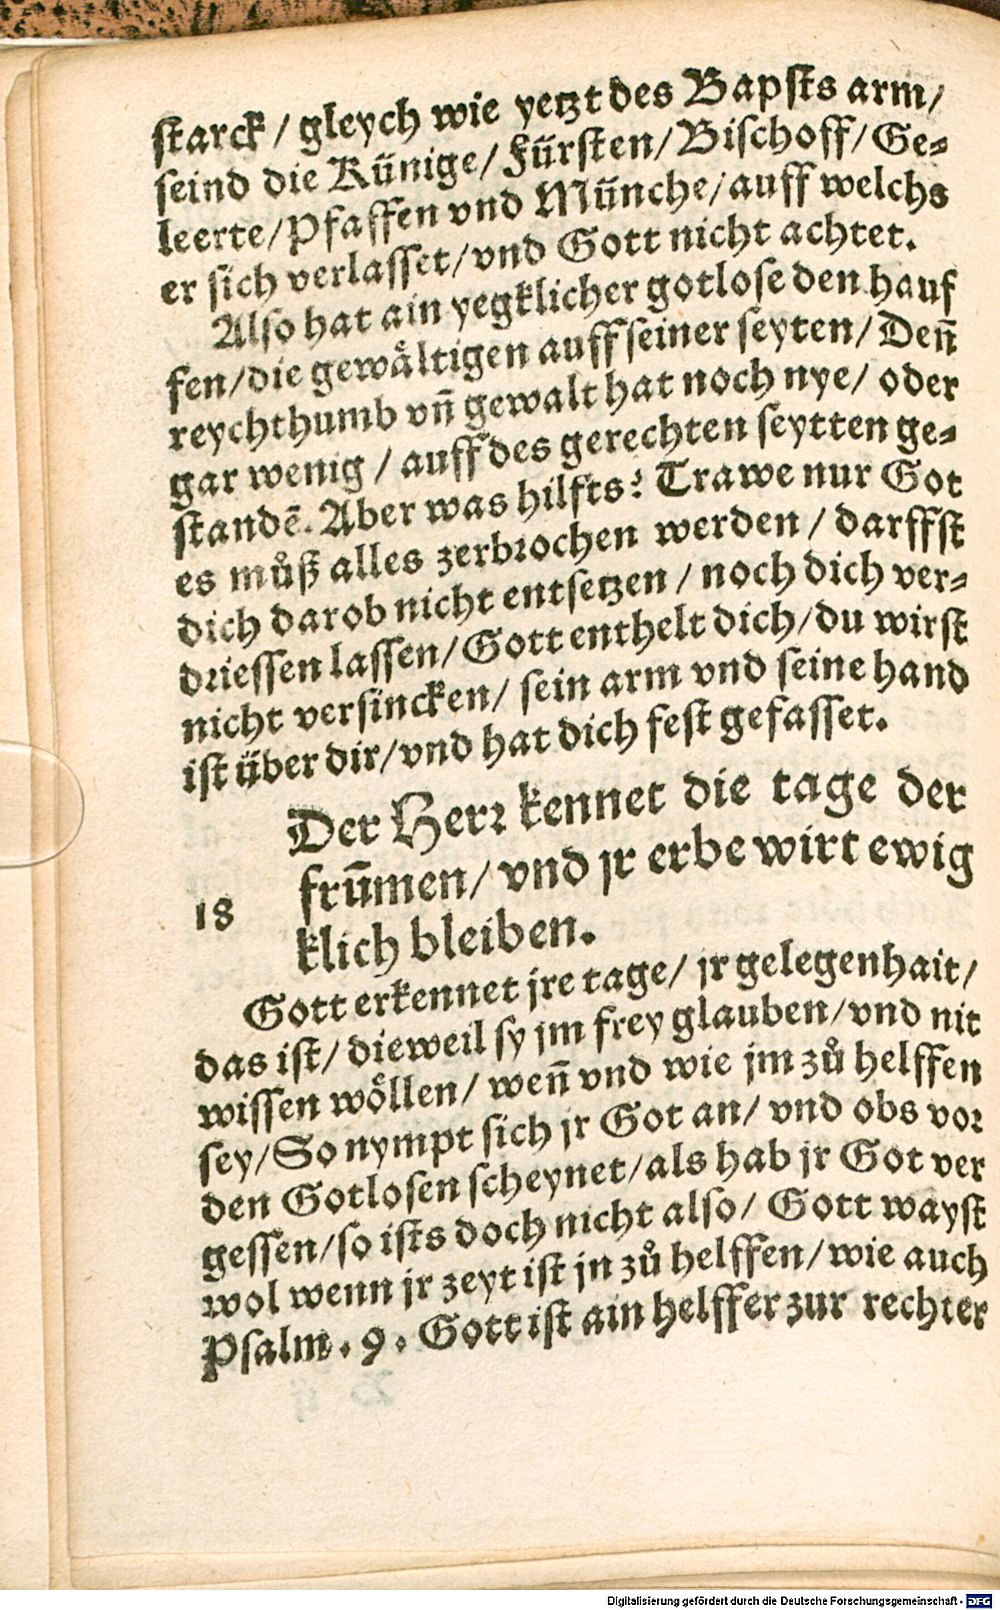 starck / gleych wie yetzt des Bapsts arm /
seind die Künige / Fürsten / Bischoff / Ge⸗
leerte / Pfaffen vnd Münche / auff welchs
er sich verlasset / vnd Gott nicht achtet.
Also hat ain yegklicher gotlose den hauf
fen / die gewåltigen auff seiner seyten / Deñ
reychthumb vñ gewalt hat noch nye / oder
gar wenig / auff des gerechten seytten ge⸗
standē. Aber was hilfts? Trawe nur Got
es můß alles zerbrochen werden / darffst
dich darob nicht entsetzen / noch dich ver⸗
driessen lassen / Gott enthelt dich / du wirst
nicht versincken / sein arm vnd seine hand
ist über dir / vnd hat dich fest gefasset.
Der Herr kennet die tage der
frṻmen / vnd jr erbe wirt ewig
18 klich bleiben.
Gott erkennet jre tage / jr gelegenhait /
das ist / dieweil sy jm frey glauben / vnd nit
wissen wöllen / weñ vnd wie jm zů helffen
sey / So nympt sich jr Got an / vnd obs vor
den Gotlosen scheynet / als hab jr Got ver
gessen / so ists doch nicht also / Gott wayst
wol wenn jr zeyt ist jn zů helffen / wie auch
Psalm . 9 . Gott ist ain helffer zur rechter
Digitalisierung gefördert durch die Deutsche Forschungsgemeinschaft - DFG